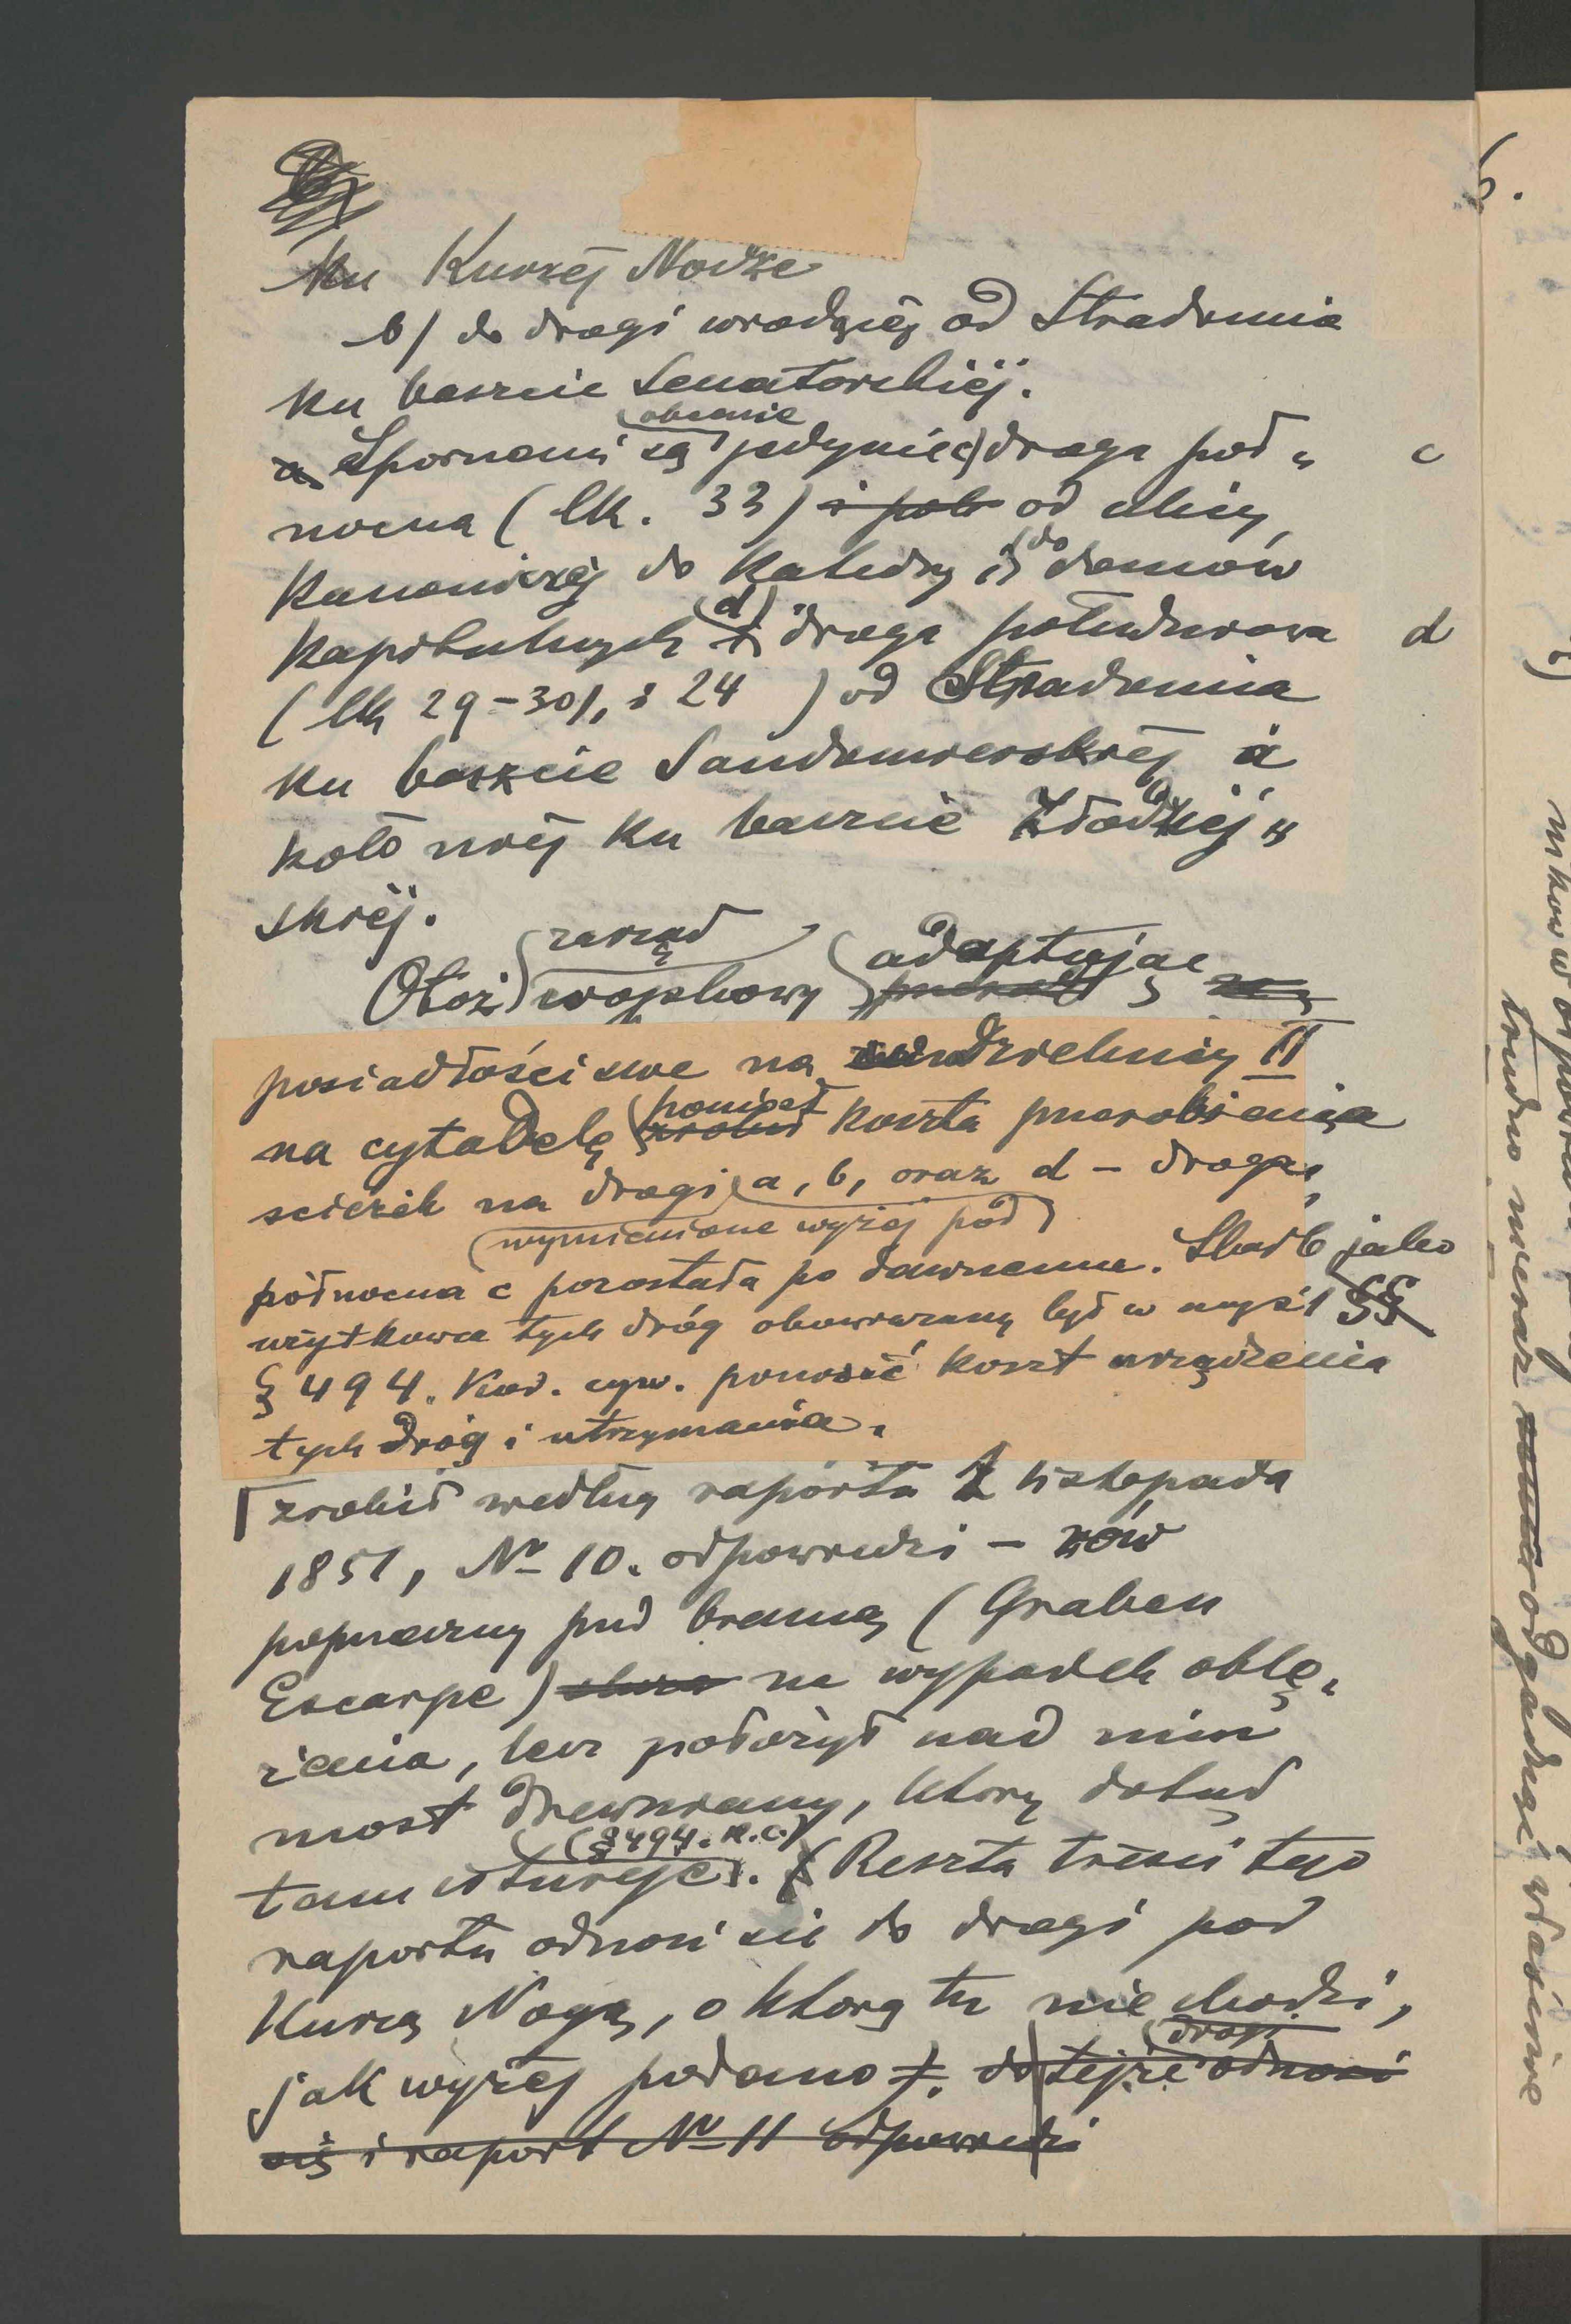 ku Kurzej Nodze
b) do drogi wiodącej od Stradomia
ku baszcie Senatorskiéj.
Spornemi są obecnie jedynie c) droga pół„ c
nocna (lk. 33) i półn od ulicy
Kanoniczéj do Katedry i do domów
kapitulnych i d) droga południowa d
(lk 29-30/, i 24 ) od Stradomia
ku baszcie Sandomierskiéj a
koło niéj ku baszcie Złodziej„
skiéj.
Otoż zarząd wojskowy adaptując
posiadłości swe na dzielnicy II
na cytadelę zrobił poniósł koszta przerobienia
scieżek na drogi a, b, oraz d – droga
wymienione wyżej pod
północna c pozostała po dawnemu. Skarb jako
użytkowca tych dróg obowiązany był w myśl §§
§ 494. Kod. cyw. ponosić koszt urządzenia
tych dróg i utrzymania.
zrobił według raportu 1 listopada
1851, No 10. odpowiedzi – rów
poprzeczny pod bramą (Graben
Escarpe) na wypadek oblę„
żenia, lecz położył nad nim
most drewniany, który dotąd
tam istnieje (§ 494. k.c.). (Reszta treści tego
raportu odnosi sie do drogi pod
Kurzą Nogą, o którą tu nie chodzi,
jak wyżej podano). do tejże drogi odnosi
się i raport No 11 odpowiedzi
6.